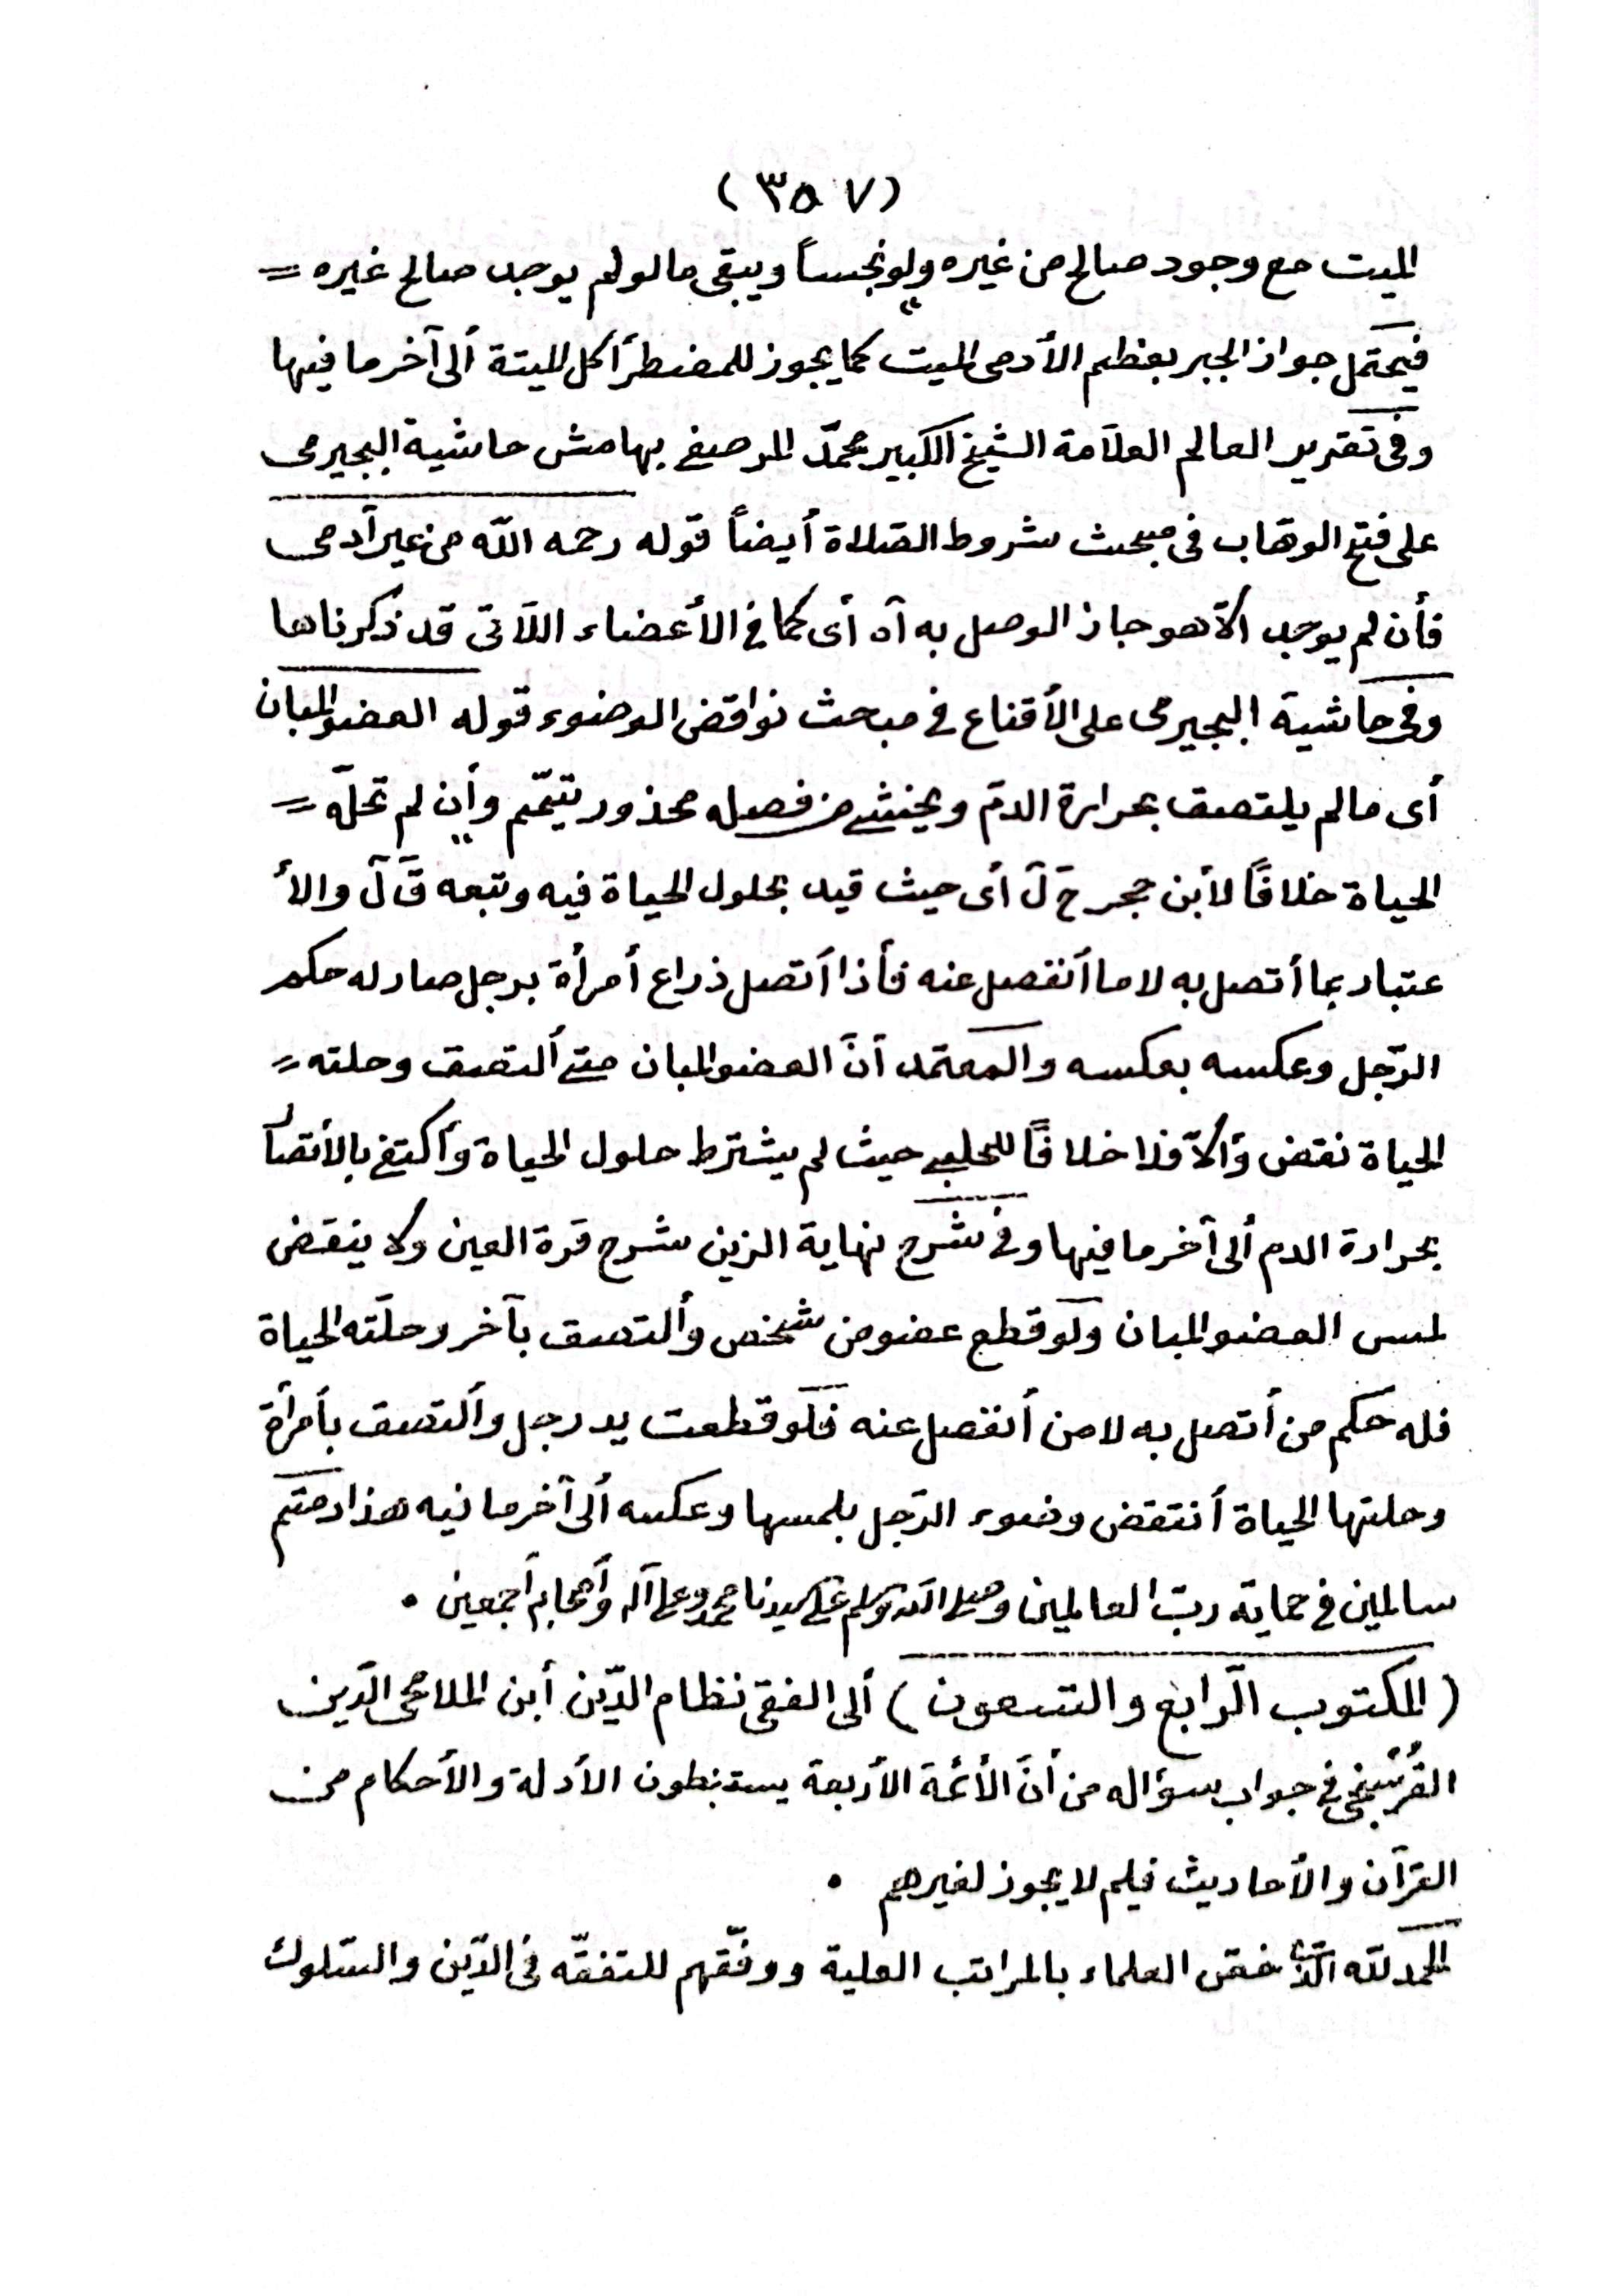 (٣٥٧)
الميت مع وجود صالح من غيره ولو نجساً ويبقى مالو لم يوجد صالح غيره =
فيحتمل جواز الجبر بعظم الأدمى الميت كما يجوز للمضطر أكل الميتة ألى آخر ما فيها
وفى تقرير العالم العلاّمة الشيخ الكبير محمّد المرصفى بهامش حاشية البجيرمى
على فتح الوهاب فى مبحث شروط الصّلاة أيضاً قوله رحمه اللّه من غير آدمى
فأن لم يوجد الاّ هو جاز الوصل به آه أى كما فى الأعضاء اللاّتى قد ذكرناها
وفى حاشية البجيرمى على الأقناع فى مبحث نواقض الوضوء قوله العضو المبان
أى مالم يلتصق بحرارة الدمّ ويخشى من فصله محذور تيمّم وأن لم تحلّه =
الحياة خلافًا لأبن حجر ح ل أى حيث قيد بحلول الحياة فيه وتبعه ق ل والأ
عتبار بما أتصل به لا ما أنفصل عنه فأذا أتصل ذراع أمرأة برجل صار له حكم
الرّجل وعكسه بعكسه والمعتمد أنّ العضو المبان متى ألتصق وحلته =
الحياة نقض وألاّ فلا خلافًا للحلبى حيث لم يشترط حلول الحياة وأكتفى بالأتصال
بحرارة الدم ألى آخر ما فيها وفى شرح نهاية الزين شرح قرة العين ولا ينقض
لمس العضو المبان ولو قطع عضو من شخص وألتصق بآخر وحلّته الحياة
فله حكم من أتصل به لا من أنفصل عنه فلو قطعت يد رجل وألتصق بأمرأة
وحلتها الحياة أنتقض وضوء الرّجل بلمسها وعكسه ألى آخر ما فيه هذا دمتم
سالمين فى حماية ربّ العالمين وصلى اللّه وسلم على سيدنا محمد وعلى آله وأصحابه أجمعين .
(المكتوب الرّابع والتسعون) ألى الفقى نظام الدّين أبن الملا محى الدّين
فى جواب سؤاله من أنّ الأئمة الأربعة يستنبطون الأدلة والأحكام من
القرآن والأحاديث فلِم لا يجوز لغيرهم .
الحمد للّه الّذى خصّ العلماء بالمراتب العلية ووفّقهم للتفقّه فى الدّين والسّلوك